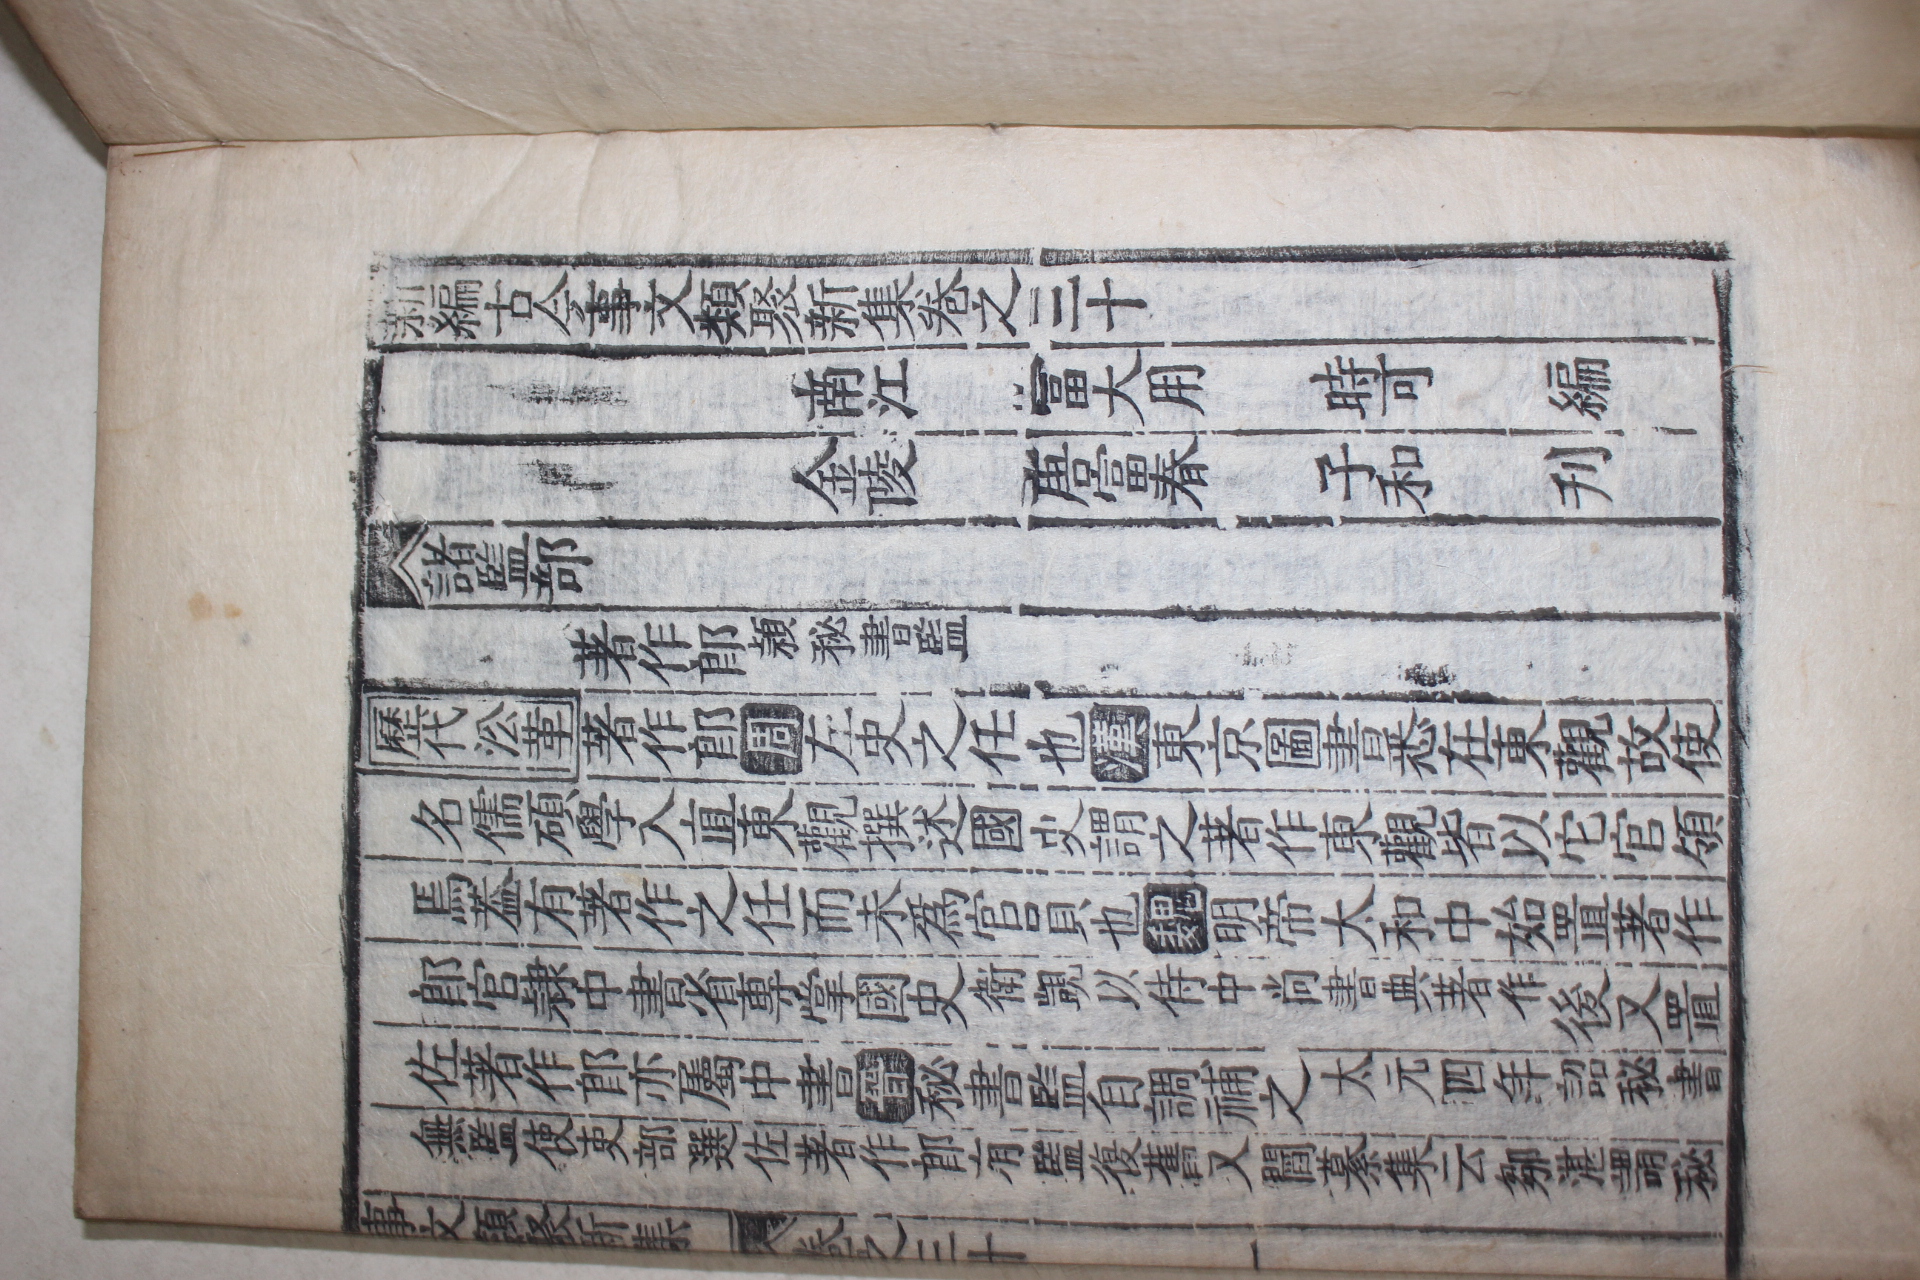 新編古今事文類聚新集卷之三十
南江 富大用 時可 編
金陵 唐富春 子和 刋
諸監部
著作郎 類秘書監
歷代沿革 著作郎 周 左史之任也 漢 東京圖書悉在東觀故使
名儒碩學入直東觀撰述國史謂之著作東觀皆以它官領
焉葢有著作之任而未爲官員也 魏 明帝太和中始置著作
郎官隷中書省專掌國史 衛覬以侍中尚書典著作 後又置
佐著作郎亦屬中書 晉 秘書監自調補之 太元四年詔秘書
無監使吏部選佐著作郎有監復舊又閻纂集云鄒湛謂秘
事文類聚新集 卷之三十 一